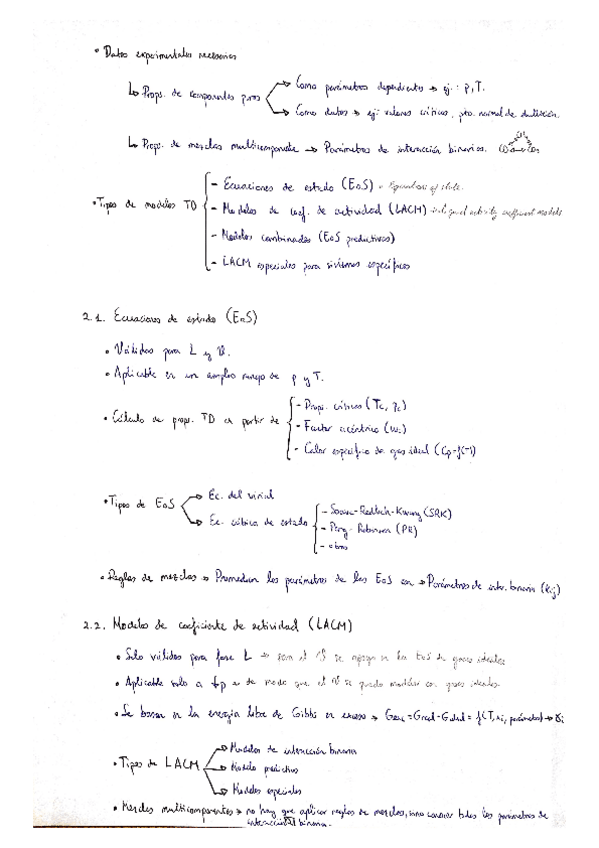 • Datos experimentales necesarios
↳ Props. de componentes puros → Como parámetros dependientes → ej.: p, T.
→ Como datos → ej: valores críticos, pto. normal de ebullición.
↳ Props. de mezclas multicomponente → Parámetros de interacción binarios.
• Tipos de modelos TD
- Ecuaciones de estado (EoS) = Equations of state.
- Modelos de coef. de actividad (LACM) = liquid activity coefficient models
- Modelos combinados (EoS predictivos)
- LACM especiales para sistemas específicos
2.1. Ecuaciones de estado (EoS)
• Válidas para L y V.
• Aplicable en un amplio rango de p y T.
• Cálculo de props. TD a partir de
- Props. críticas (Tc, pc)
- Factor acéntrico (ωi)
- Calor específico de gas ideal (Cp=f(T))
• Tipos de EoS
→ Ec. del virial
→ Ec. cúbica de estado
- Soave-Redlich-Kwong (SRK)
- Peng-Robinson (PR)
- otros
• Reglas de mezclas → Promedian los parámetros de las EoS con → Parámetros de inter. binaria (kij)
2.2. Modelos de coeficiente de actividad (LACM)
• Solo válidos para fase L → para el V se apoya en las EoS de gases ideales
• Aplicable solo a ↓p → de modo que el V se puede modelar con gases ideales
• Se basan en la energía libre de Gibbs en exceso → Gexc = Greal - Gideal = f(T, xi, parámetros) → γi
• Tipos de LACM
→ Modelos de interacción binaria
→ Modelo predictivos
→ Modelos especiales
• Mezclas multicomponentes → no hay que aplicar reglas de mezclas, sino conocer todos los parámetros de
interacción binaria.